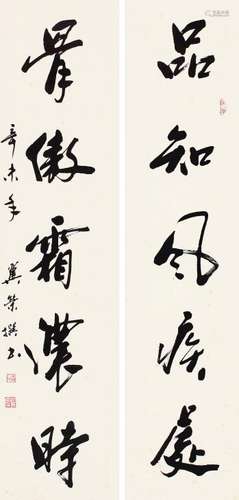 品知风疾处
骨傲霜浓时
辛未年 冀荣撰书